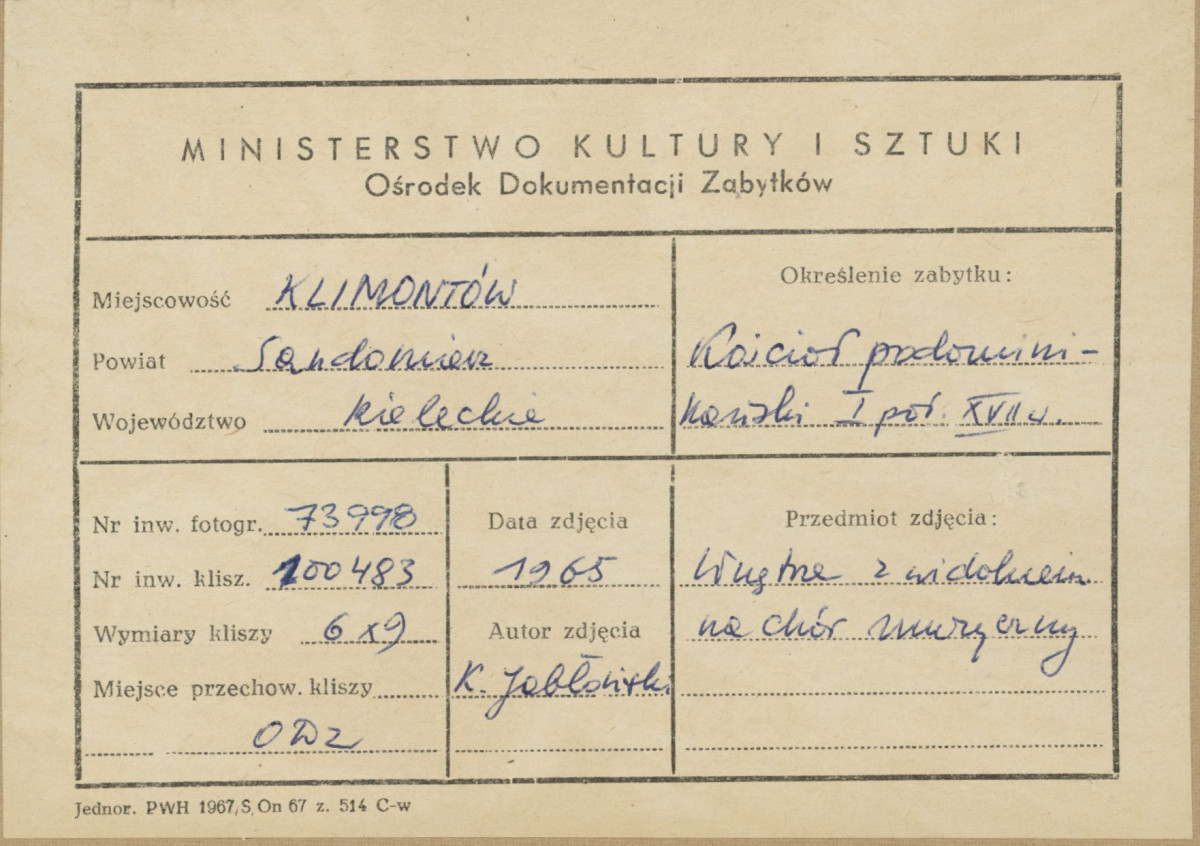 MINISTERSTWO KULTURY I SZTUKI
Ośrodek Dokumentacji Zabytków
Miejscowość KLIMONTÓW
Powiat Sandomierz
Województwo kieleckie
Określenie zabytku:
Kościół podomini-
kański I poł. XVII w.
Nr inw. fotogr. 73998
Nr inw. klisz. 100483
Wymiary kliszy 6x9
Miejsce przechow. kliszy
ODZ
Data zdjęcia
1965
Autor zdjęcia
K. Jabłoński
Przedmiot zdjęcia:
Wnętrze z widokiem
na chór muzyczny
Jednor. PWH 1967, S, On 67 z. 514 C-w